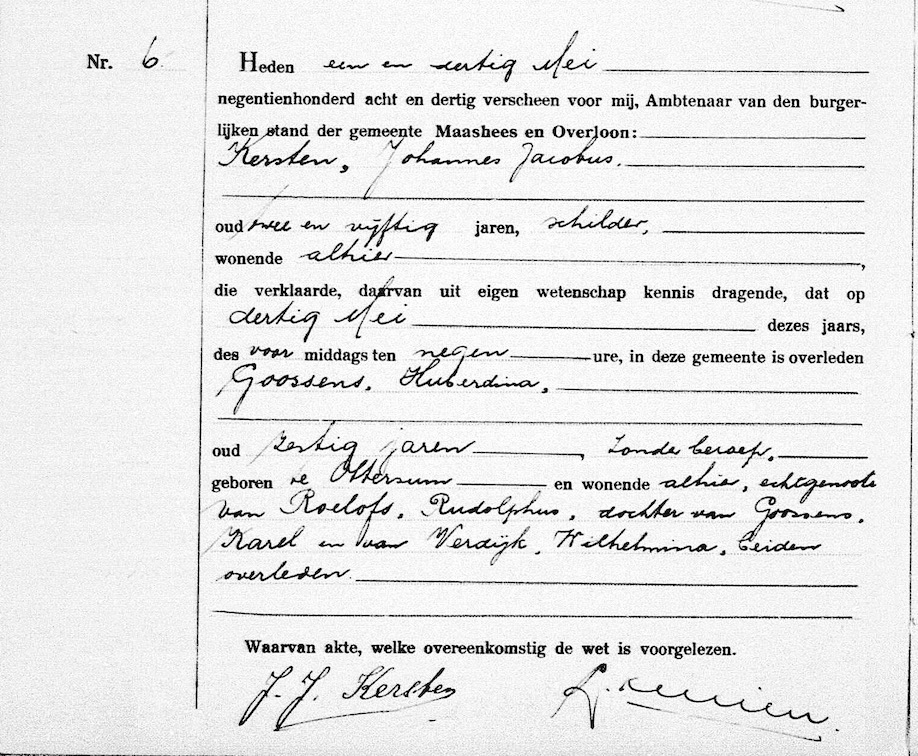 Nr. 6
Heden een en dertig Mei
negentienhonderd acht en dertig verscheen voor mij, Ambtenaar van den burger-
lijken stand der gemeente Maashees en Overloon:
Kersten, Johannes Jacobus.
oud twee en vijftig jaren, schilder,
wonende alhier,
die verklaarde, daarvan uit eigen wetenschap kennis dragende, dat op
dertig Mei dezes jaars,
des voor middags ten negen ure, in deze gemeente is overleden
Goossens, Huberdina,
oud zestig jaren, zonder beroep,
geboren te Ottersum en wonende alhier, echtgenoote
van Roelofs, Rudolphus, dochter van Goossens,
Karel en van Verdijk, Wilhelmina, beiden
overleden.
Waarvan akte, welke overeenkomstig de wet is voorgelezen.
J. J. Kersten